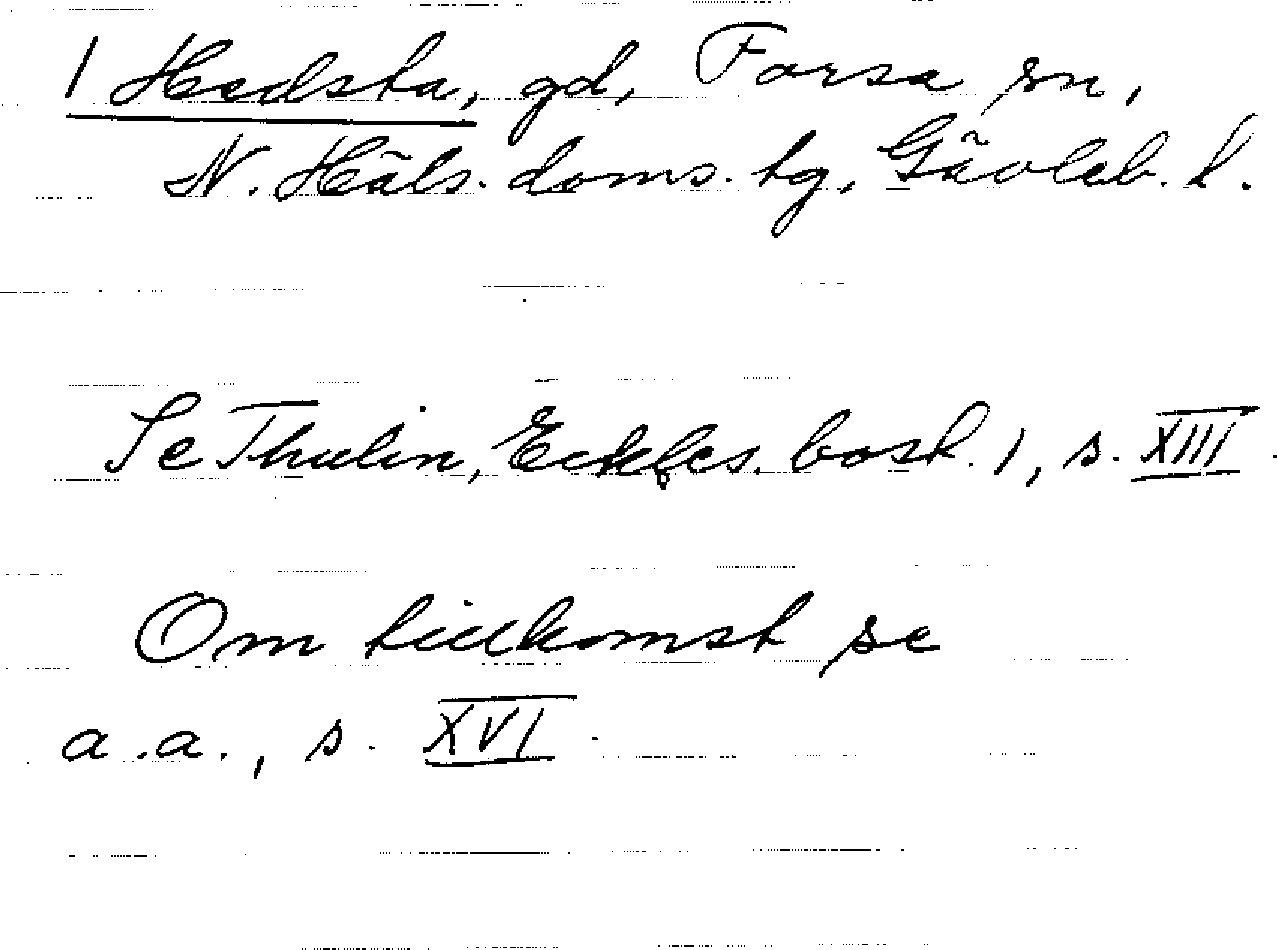 1 Hedsta, gd, Forsa sn,
N. Häls. doms. tg, Gävleb. l.
Se Thulin, Eckles. bost. 1, s. XIII.
Om tillkomst se
a.a., s. XVI.